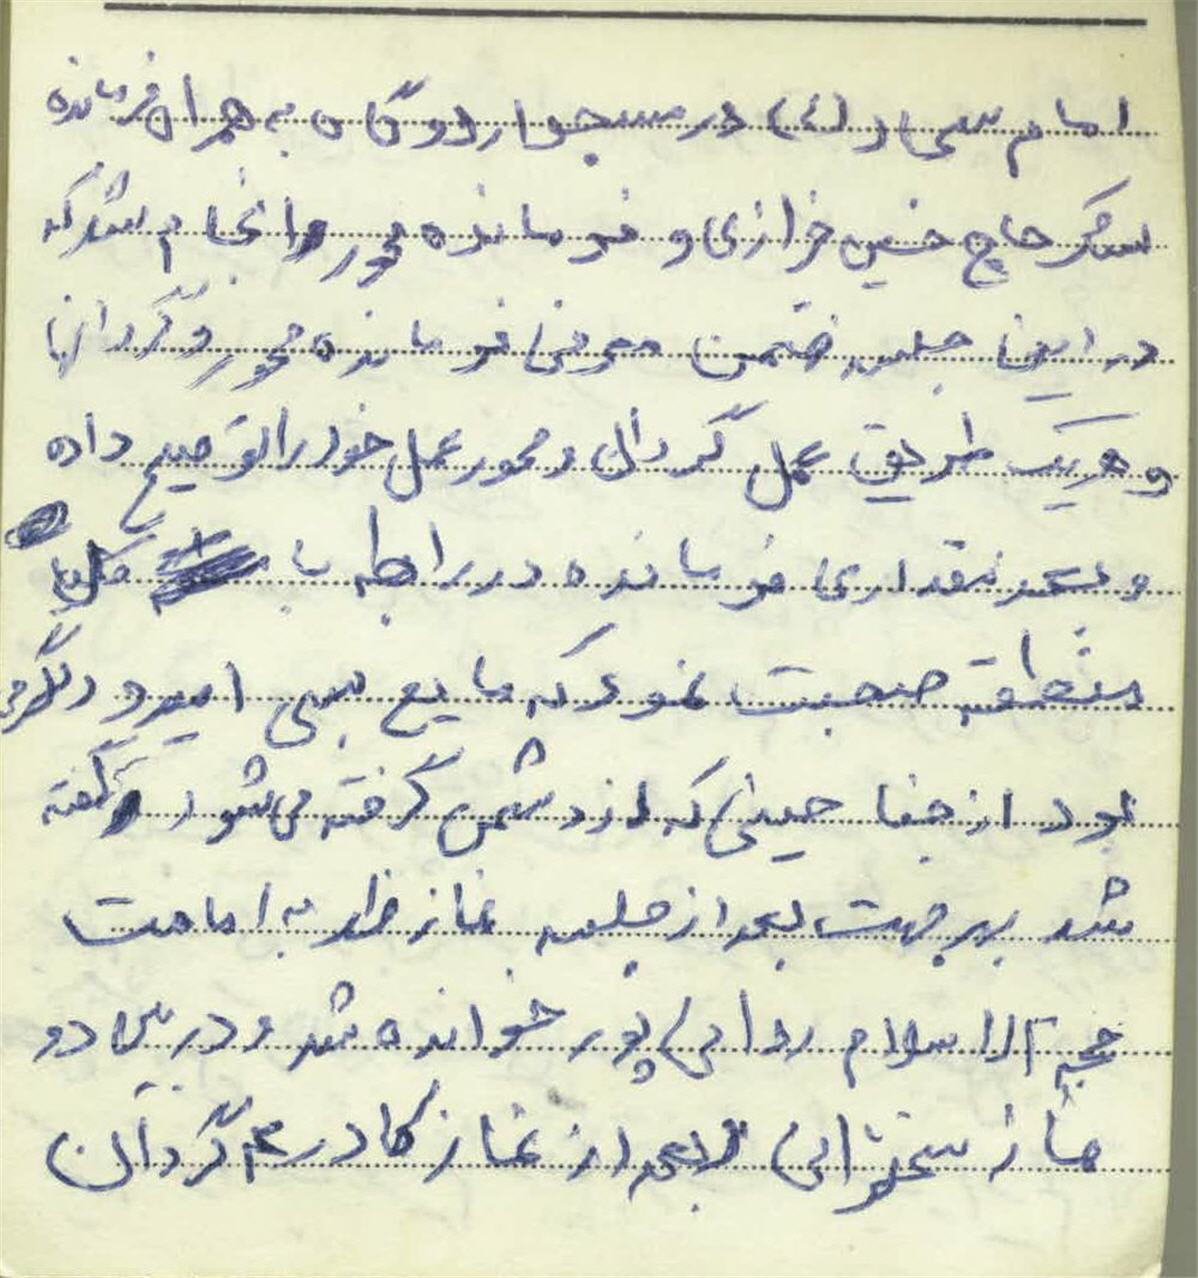 امام سجاد (ع) در مسجد اردوگاه به همراه فرمانده
لشگر حاج حسین خرازی و فرمانده محور انجام شد که
در این جلسه ضمن معرفی فرمانده محور و گردانها
و هریک طریق عمل گردان و محور عمل خود را توضیح داده
و مقداری فرمانده در رابطه با
منطقه صحبت نمود که ما یع بسی امید و دلگرمی
بود از جناحینی که از دشمن گرفته می‌شود گفته
شد بهر جهت بعد از جلسه نماز ظهر به امامت
حجة الاسلام ردانی پور خوانده شد و در بین دو
نماز سخنرانی بعد از نماز کادر ۳ گردان